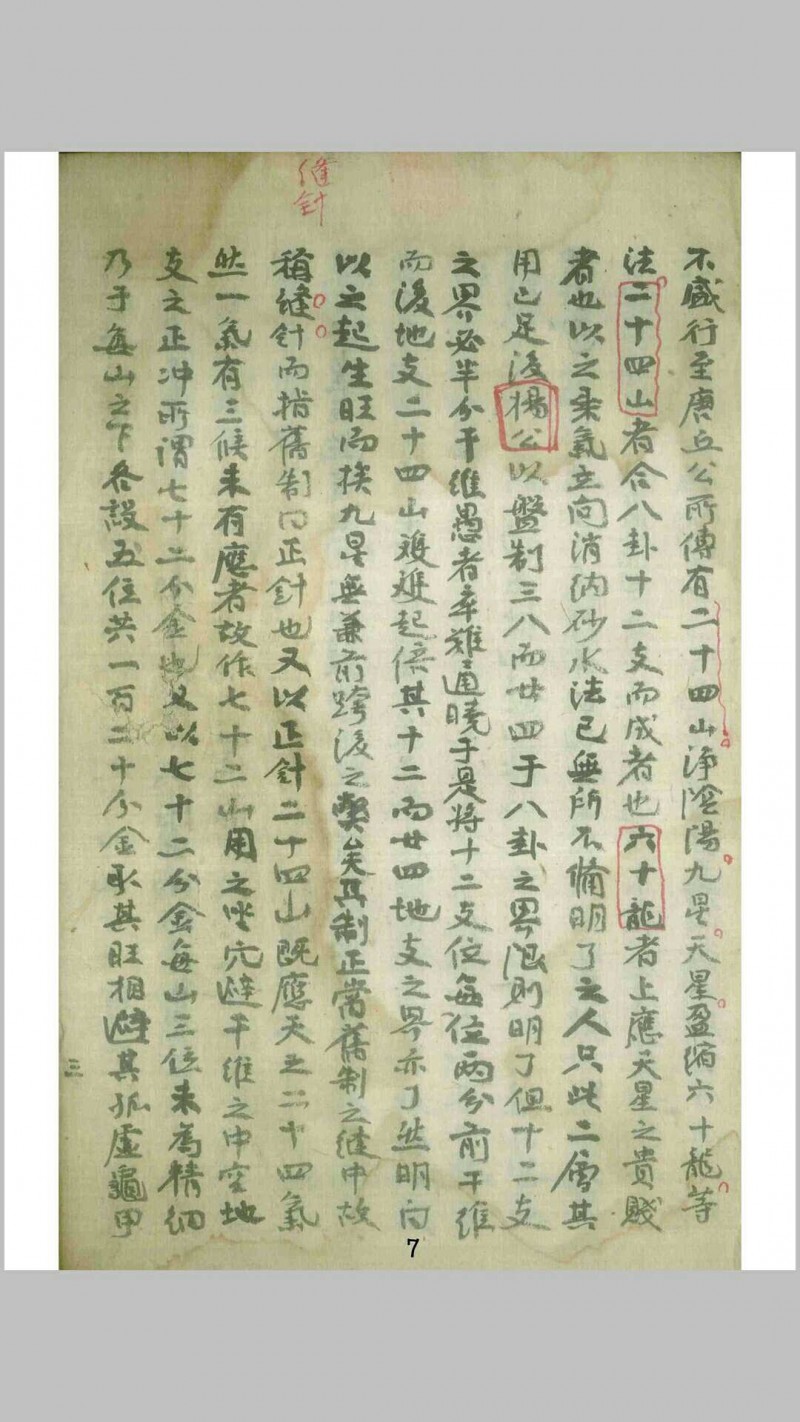 縫針
不盛行至唐丘公所傳有二十四山淨陰陽九星天星盈縮六十龍等
法二十四山者合八卦十二支而成者也六十龍者上應天星之貴賤
者也以之乘氣立向消納砂水法已無所不備明了之人只此二層其
用已足後楊公以盤制三八而廿四于八卦之界限則明了但十二支
之界必半分干維愚者卒難通曉于是將十二支位每位兩分前干維
而後地支二十四山雙雙起倍其十二而廿四地支之界亦了然明白
以之起生旺而挨九星無兼前跨後之弊矣其制正當舊制之縫中故
稱縫針而指舊制曰正針也又以正針二十四山既應天之二十四氣
然一氣有三候未有應者故作七十二山用之坐穴避干維之中空地
支之正冲所謂七十二分金也又以七十二分金每山三位未為精細
乃于每山之下各設五位共一百二十分金取其旺相避其孤虛龜甲
三
7